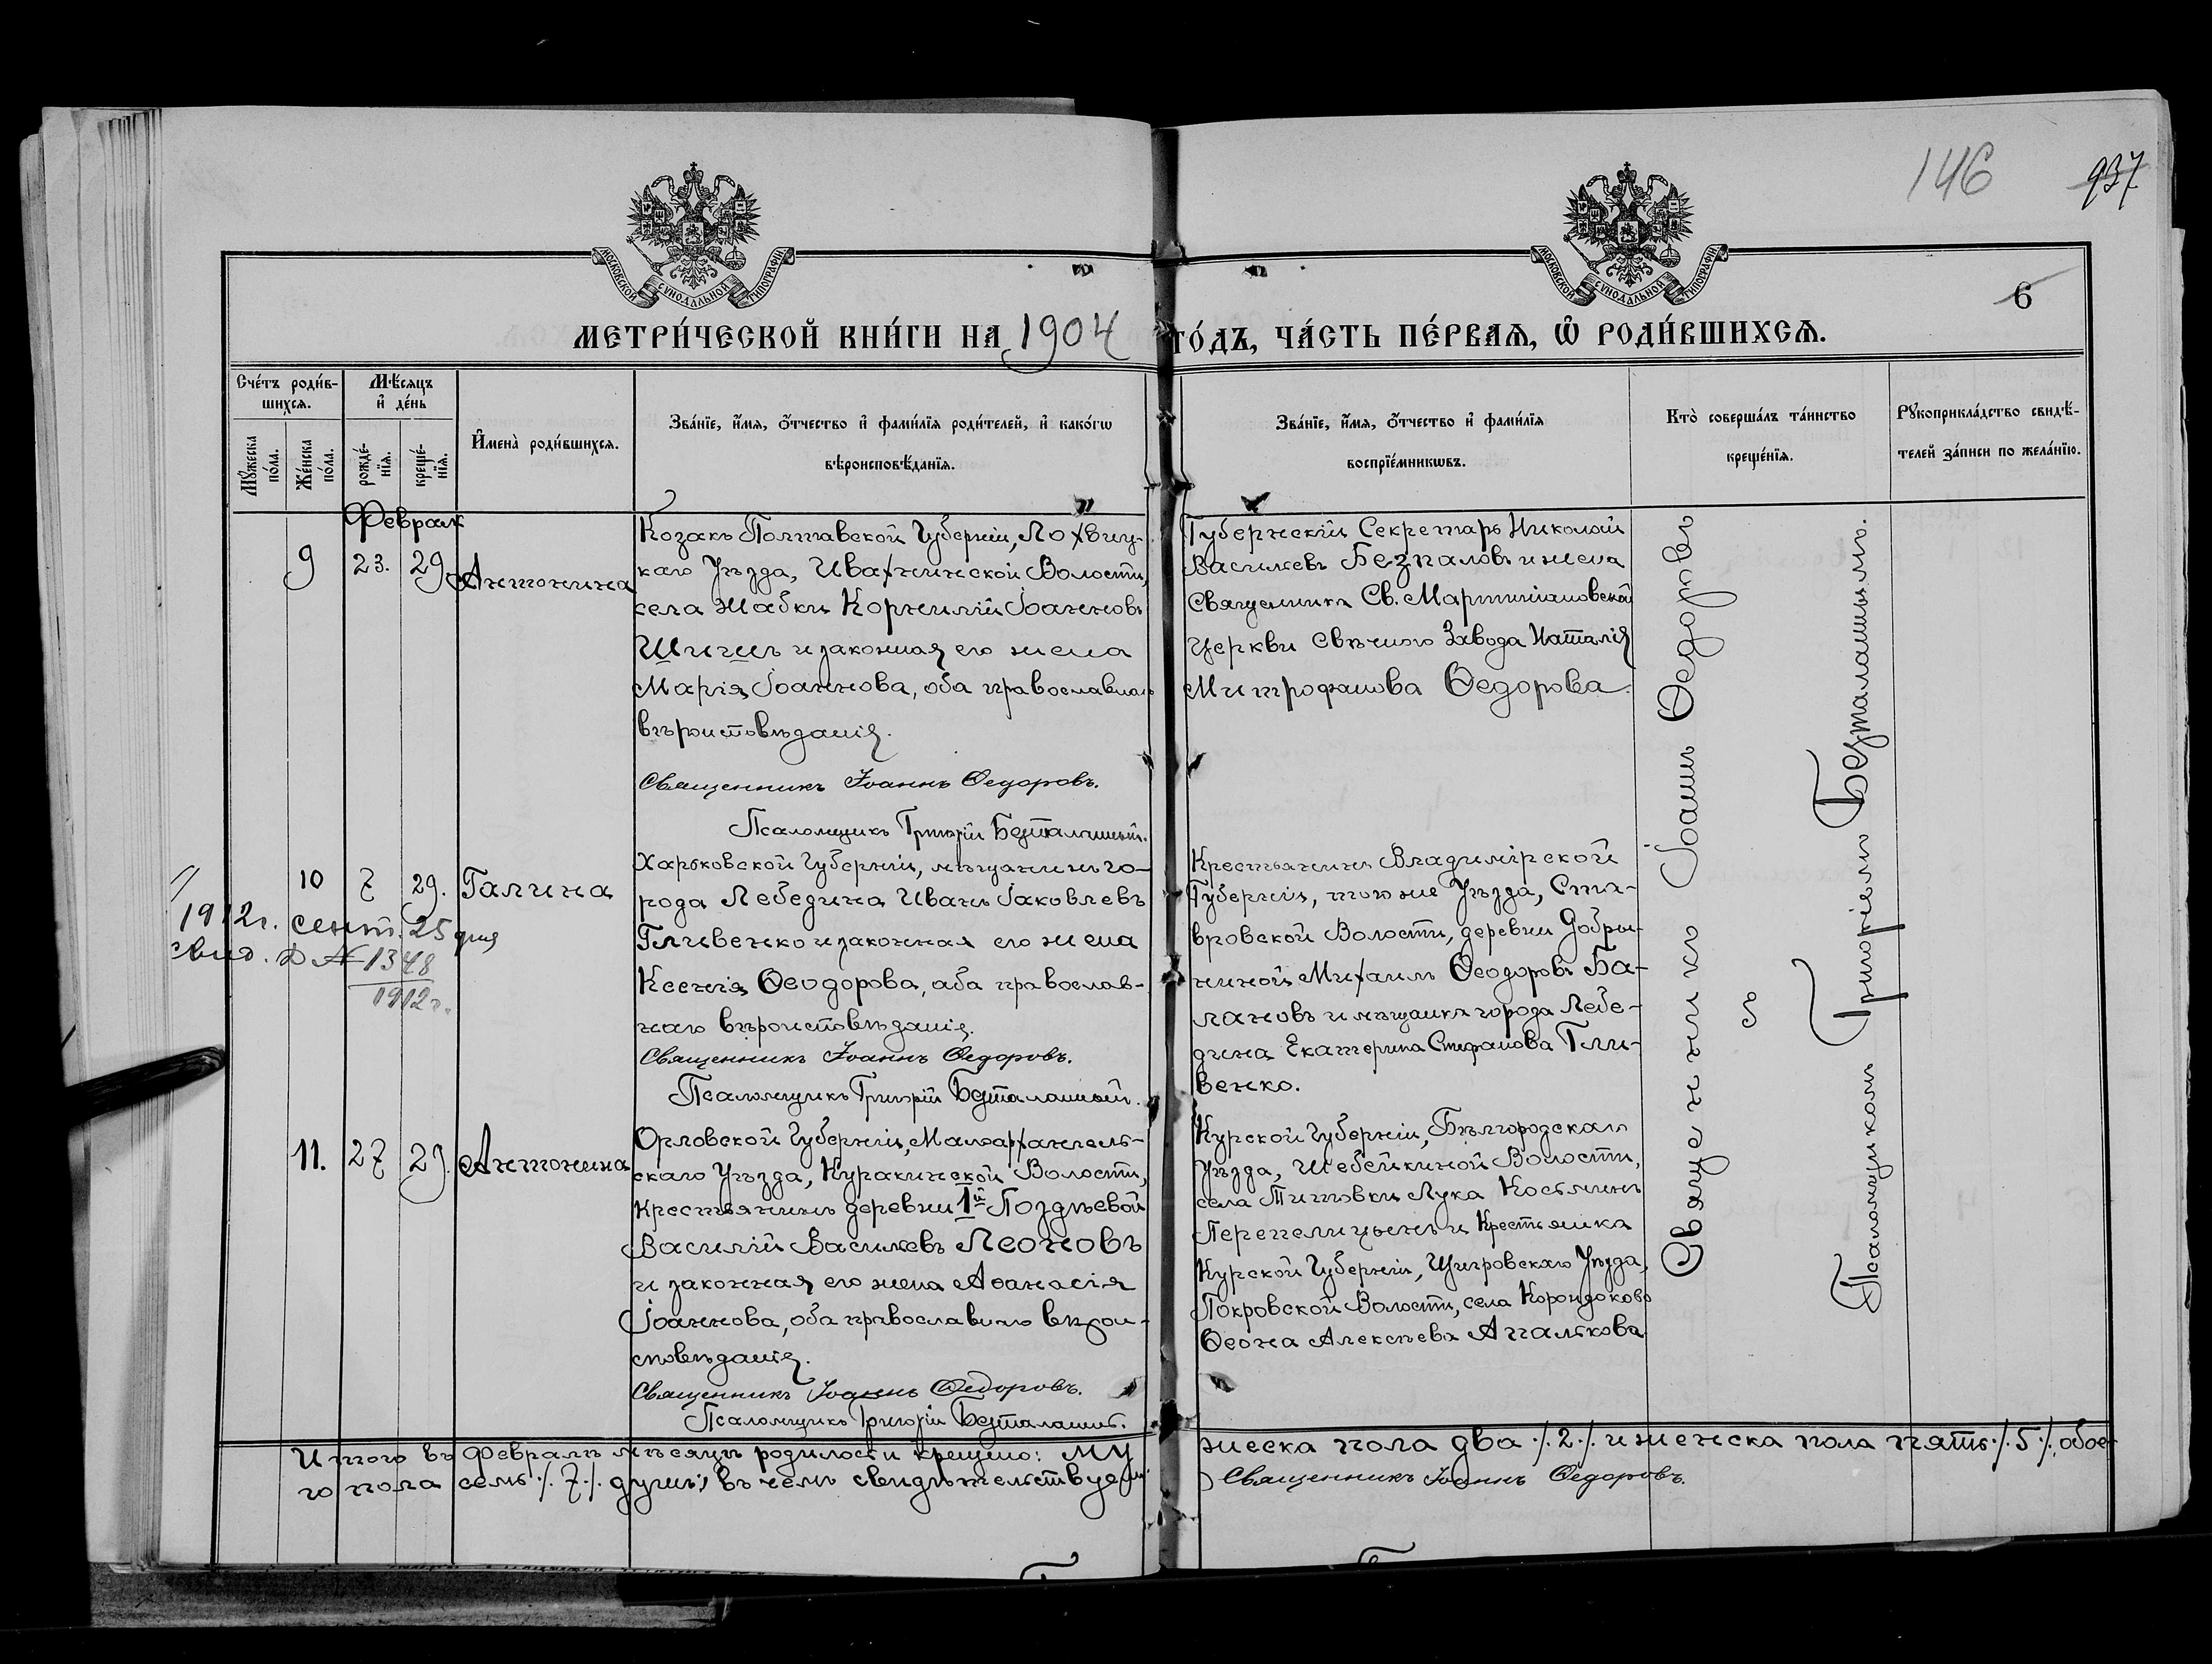 146
937
МОСКОВСКОЙ СѴНОДАЛЬНОЙ ТИПОГРАФІИ.
МОСКОВСКОЙ СѴНОДАЛЬНОЙ ТИПОГРАФІИ.
6
МЕТРИ́ЧЕСКОЙ КНИ́ГИ НА 1904 ГО́ДЪ, ЧА́СТЬ ПЕ́РВАѦ, Ѿ РОДИ́ВШИХСѦ.
Сче́тъ роди́в-
шихсѧ.
Мꙋ́жеска по́ла.
Же́нска по́ла.
Мѣ́сѧцъ
и҆ де́нь
рожде́-
нїѧ.
креще́-
нїѧ.
И҆мена̀ роди́вшихсѧ.
Зва́нїе, и҆́мѧ, ѻ҆́тчество и҆ фами́лїѧ роди́телей, и҆ како́гѡ
вѣроисповѣ́данїѧ.
Зва́нїе, и҆́мѧ, ѻ҆́тчество и҆ фами́лїѧ
воспрїе́мникѡвъ.
Кто̀ соверша́лъ та́инство
креще́нїѧ.
Рꙋкоприкла́дство свидѣ́-
телей за́писи по жела́нїю.
Февраль
9
23.
29
Антонина
Козакъ Полтавской Губерніи, Лохвиц-
каго Уѣзда, Ивахнинской Волости,
села Жабки Корнилій Іоанновъ
Шишъ и законная его жена
Марія Іоаннова, оба православнаго
вѣроисповѣданія.
Священникъ Іоаннъ Ѳедоровъ.
Псаломщикъ Григорій Безпалашный.
Губернскій Секретарь Николай
Васильевъ Безпаловъ и жена
Священника Св. Мартиніановской
Церкви Свѣчного Завода Наталія
Митрофанова Ѳедорова.
10
7
29.
Галина
1912 г. сент. 25 дня
свид. № 1348
1912 г.
Харьковской Губерніи, мѣщанинъ го-
рода Лебедина Иванъ Іаковлевъ
Гливенко и законная его жена
Ксенія Ѳеодорова, оба православ-
наго вѣроисповѣданія.
Священникъ Іоаннъ Ѳедоровъ.
Псаломщикъ Григорій Безпалашный.
Крестьянинъ Владимірской
Губерніи, того же Уѣзда, Ста-
вровской Волости, деревни Добры-
ниной Михаилъ Ѳеодоровъ Ба-
лановъ и мѣщанка города Лебе-
дина Екатерина Стефанова Гли-
венко.
11.
27
29.
Антонина
Орловской Губерніи, Малоархангель-
скаго Уѣзда, Куракинской Волости,
Крестьянинъ деревни 1й Поздѣевой
Василій Васильевъ Леоновъ
и законная его жена Аѳанасія
Іоаннова, оба православнаго вѣрои-
сповѣданія.
Священникъ Іоаннъ Ѳедоровъ.
Псаломщикъ Григорій Безпалашный.
Курской Губерніи, Бѣлгородскаго
Уѣзда, Шебекиной Волости,
села Титовки Лука Косьминъ
Перепелицынъ и Крестьянка
Курской Губерніи, Щигровскаго Уѣзда,
Покровской Волости, села Корондоково
Ѳеона Алексѣева Апалькова
Священникъ Іоаннъ Ѳедоровъ
съ
Псаломщикомъ Григоріемъ Безпалашнымъ.
Итого въ Февралѣ мѣсяцѣ родилось и крещено: му
жеска пола два ./. 2 ./. и женска пола пять ./. 5 ./., обое-
го пола семь ./. 7 ./. душъ, въ чемъ свидѣтельствуемъ
Священникъ Іоаннъ Ѳедоровъ.